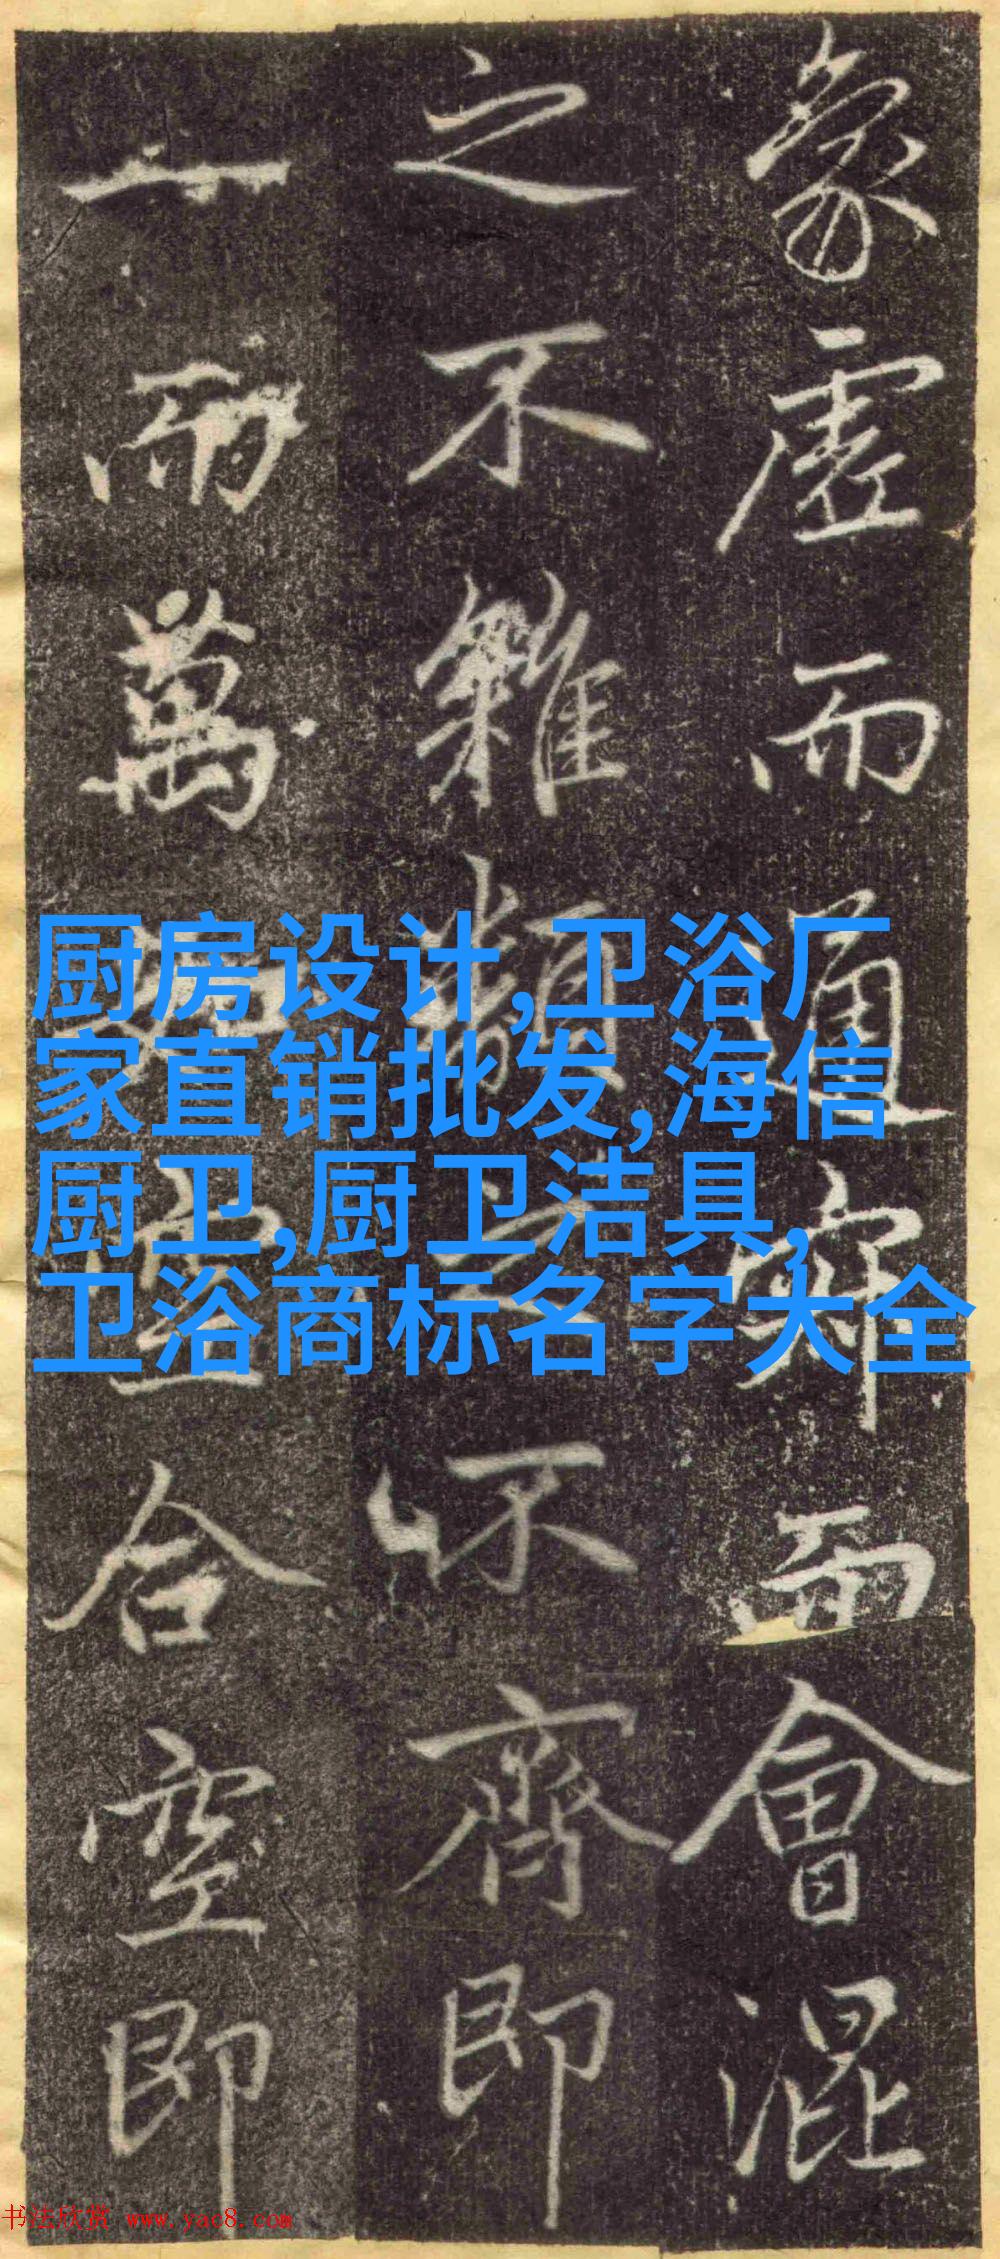 象虛而通而會混
之不雜類之不齊即
一而萬合空即
厨房设计,卫浴厂
家直销批发,海信
厨卫,厨卫洁具,
卫浴商标名字大全
书法欣赏 www.yac8.com